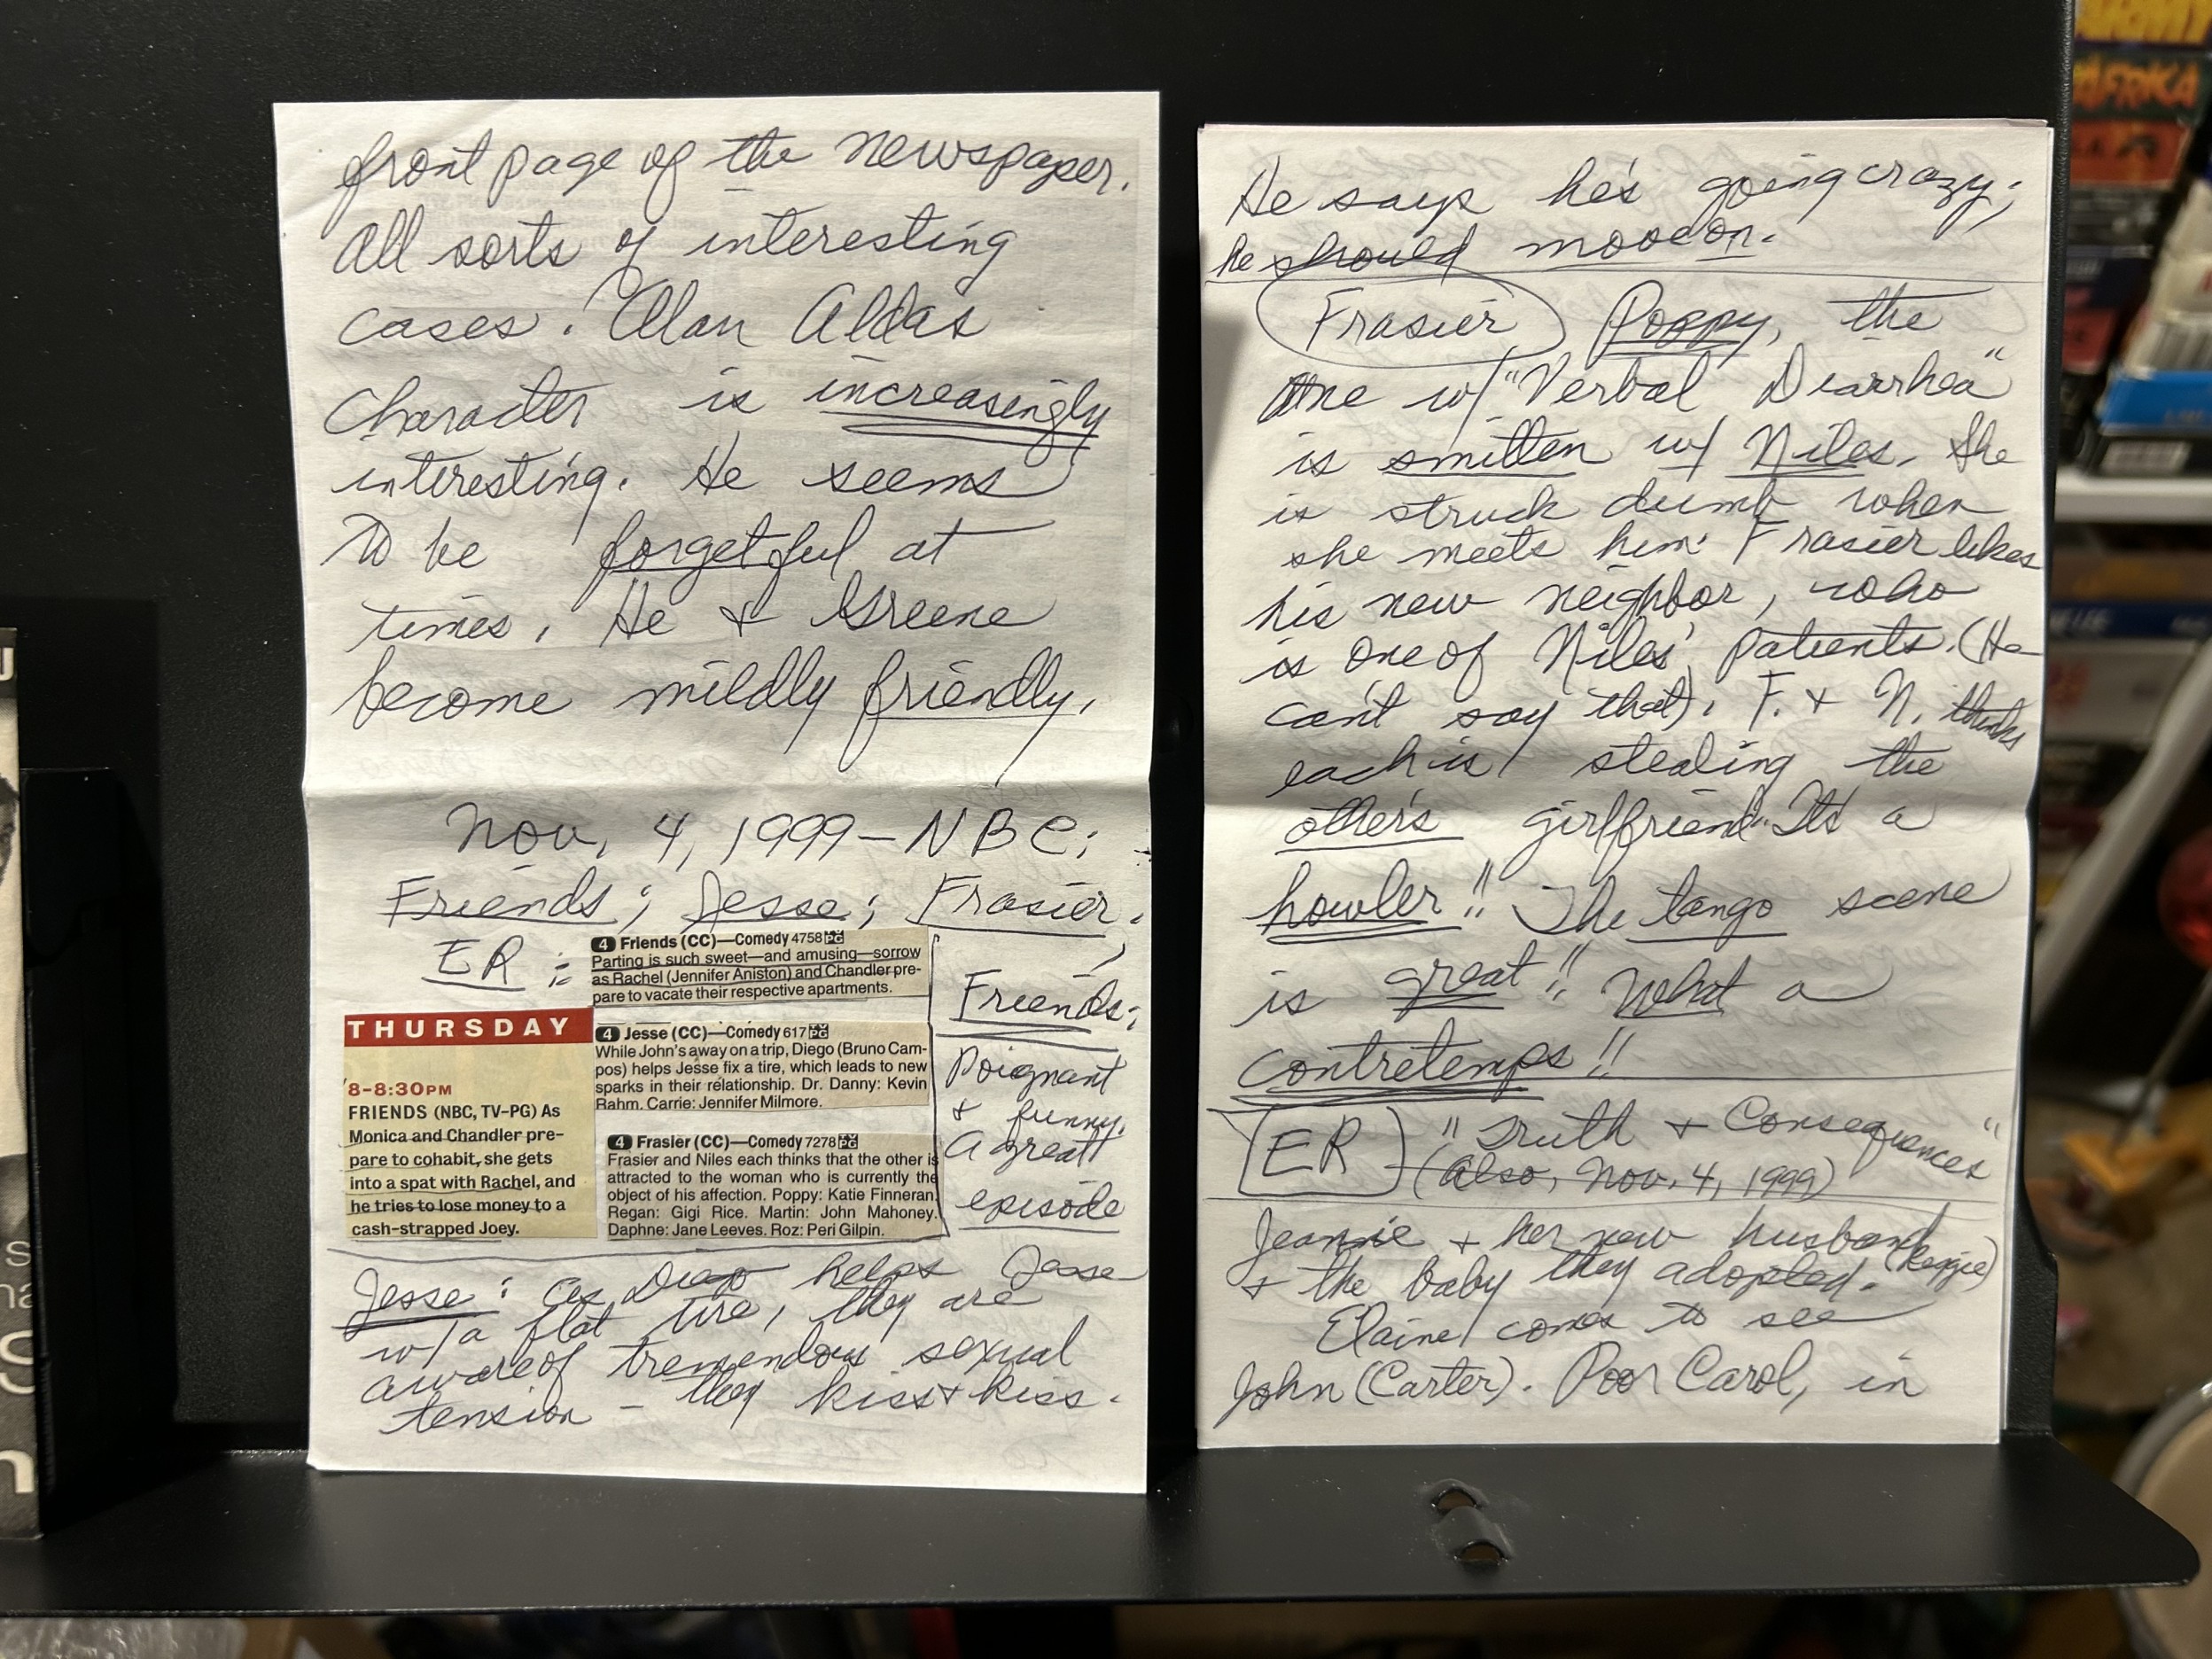 front page of the newspaper.
All sorts of interesting
cases. Alan Alda's
character is increasingly
interesting. He seems
to be forgetful at
times. He & Greene
become mildly friendly.
Nov. 4, 1999 - NBC:
Friends; Jesse; Frasier;
ER:
4 Friends (CC)—Comedy 4758 TV PG
Parting is such sweet—and amusing—sorrow
as Rachel (Jennifer Aniston) and Chandler pre-
pare to vacate their respective apartments.
THURSDAY
8-8:30PM
FRIENDS (NBC, TV-PG) As
Monica and Chandler pre-
pare to cohabit, she gets
into a spat with Rachel, and
he tries to lose money to a
cash-strapped Joey.
4 Jesse (CC)—Comedy 617 TV PG
While John's away on a trip, Diego (Bruno Cam-
pos) helps Jesse fix a tire, which leads to new
sparks in their relationship. Dr. Danny: Kevin
Rahm. Carrie: Jennifer Milmore.
4 Frasier (CC)—Comedy 7278 TV PG
Frasier and Niles each thinks that the other is
attracted to the woman who is currently the
object of his affection. Poppy: Katie Finneran.
Regan: Gigi Rice. Martin: John Mahoney.
Daphne: Jane Leeves. Roz: Peri Gilpin.
Friends:
Poignant
& funny.
A great
episode
Jesse: As Diego helps Jesse
w/a flat tire, they are
aware of tremendous sexual
tension - they kiss & kiss.
He says he's going crazy;
he should move on.
Frasier Poppy, the
one w/ "Verbal Diarrhea"
is smitten w/ Niles. She
is struck dumb when
she meets him. Frasier likes
his new neighbor, who
is one of Niles' patients. (He
can't say that). F. & N. thinks
each is stealing the
other's girlfriend. It's a
howler!! The tango scene
is great!! What a
contretemps!!
ER "Truth & Consequences"
(Also, Nov. 4, 1999)
Jeannie & her new husband (Reggie)
& the baby they adopted.
Elaine comes to see
John (Carter). Poor Carol, in